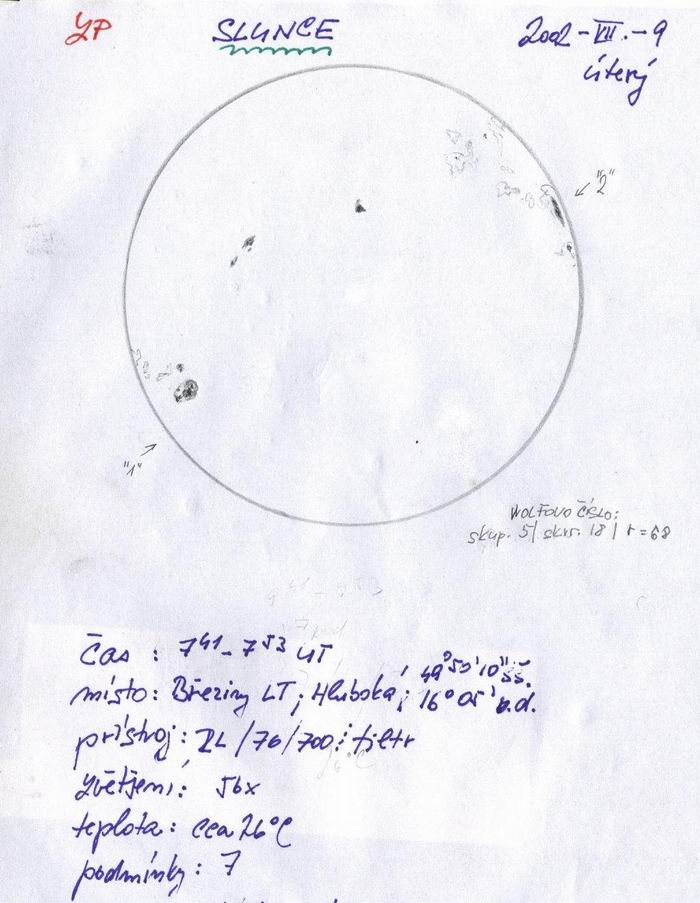 YP
SLUNCE
2002-VII.-9
úterý
"2"
"1"
WOLFOVO ČÍSLO:
skup. 5 / skvr. 18 / r=68
Čas : 7⁴¹-7⁵³ UT
místo: Březiny LT; Hluboká; 49°50'10" s.š.
16°05' v.d.
přístroj: ZL/76/700; filtr
zvětšení: 56x
teplota: cca 26°C
podmínky: 7